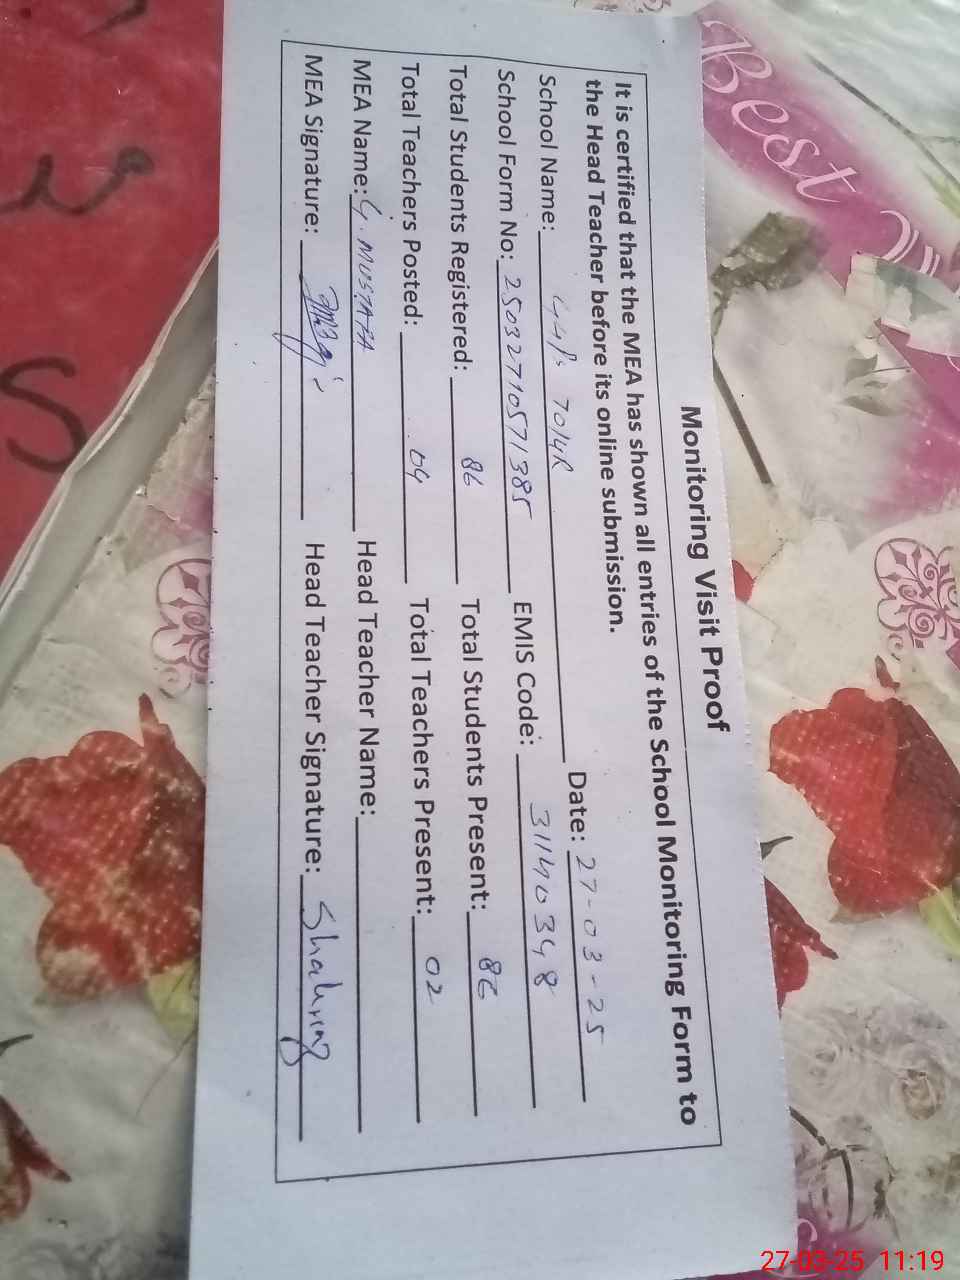 Monitoring Visit Proof
It is certified that the MEA has shown all entries of the School Monitoring Form to
the Head Teacher before its online submission.
School Name: 70/4R Date: 27-03-25
School Form No: 25032710571385 EMIS Code: 31140348
Total Students Registered: 86 Total Students Present: 86
Total Teachers Posted: 04 Total Teachers Present: 02
MEA Name: G. MUSTAFA Head Teacher Name:
MEA Signature: Head Teacher Signature:
Best
S
27-03-25 11:19